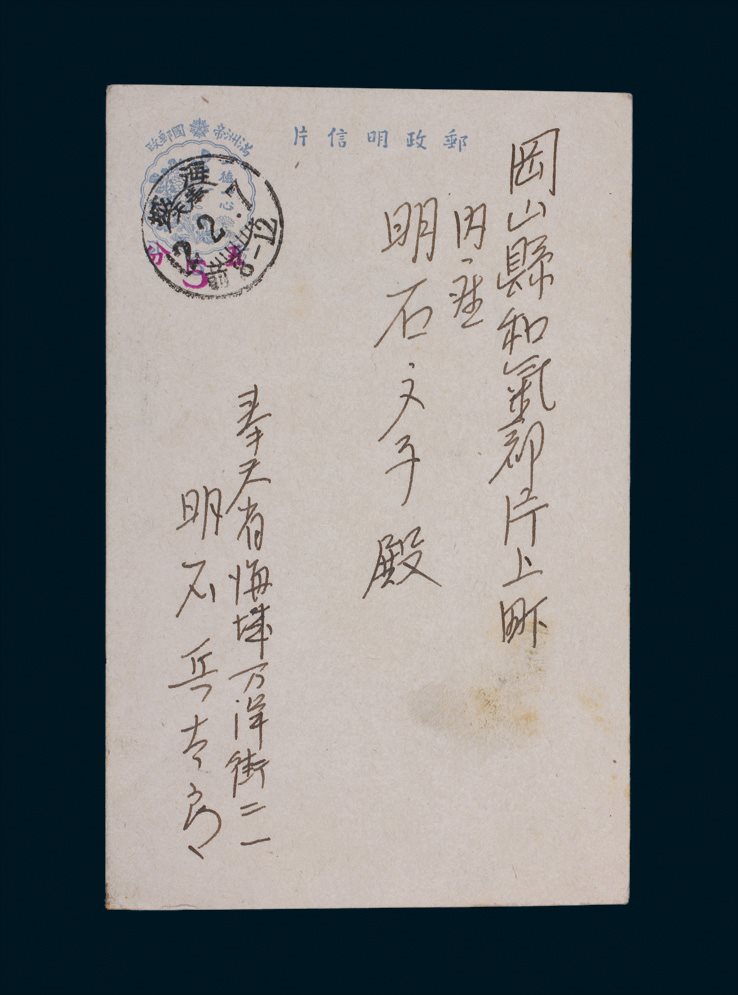 岡山縣和氣郡片上町
内産
明石文子殿
奉天省海城万洋街二一
明石兵太郎
郵政明信片
満洲帝國郵政
海城
奉天
2.2.7
8-12
5
分